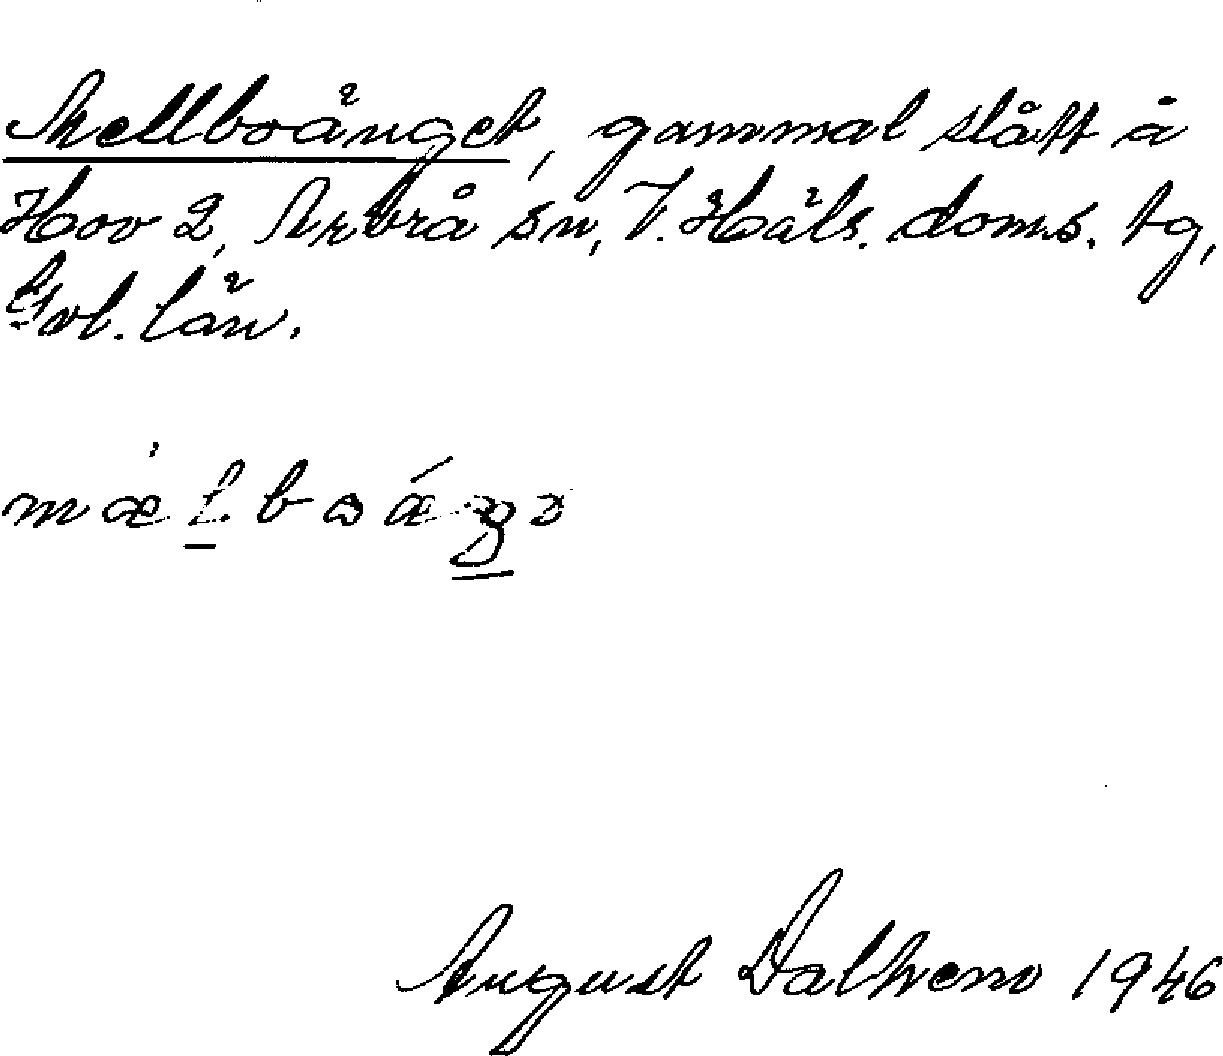 Mellboänget, gammal slått å
Hov 2, Arbrå sn, V. Häls. doms. tg,
Gvl. län.
August Dalhemo 1946